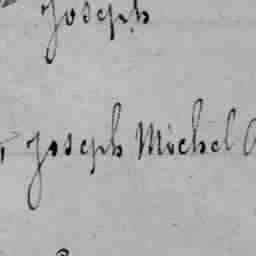 Joseph
Joseph Michel